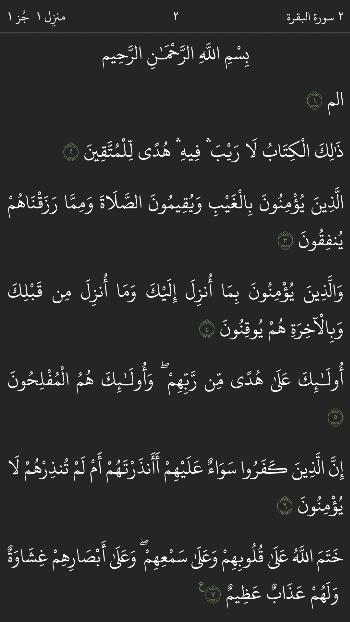 ٢ سورة البقرة ٢ منزل ١ جُز ١
بِسْمِ اللَّهِ الرَّحْمَـٰنِ الرَّحِيمِ
الم ﴿١﴾
ذَٰلِكَ الْكِتَابُ لَا رَيْبَ ۛ فِيهِ ۛ هُدًى لِّلْمُتَّقِينَ ﴿٢﴾
الَّذِينَ يُؤْمِنُونَ بِالْغَيْبِ وَيُقِيمُونَ الصَّلَاةَ وَمِمَّا رَزَقْنَاهُمْ
يُنفِقُونَ ﴿٣﴾
وَالَّذِينَ يُؤْمِنُونَ بِمَا أُنزِلَ إِلَيْكَ وَمَا أُنزِلَ مِن قَبْلِكَ
وَبِالْآخِرَةِ هُمْ يُوقِنُونَ ﴿٤﴾
أُولَـٰئِكَ عَلَىٰ هُدًى مِّن رَّبِّهِمْ ۖ وَأُولَـٰئِكَ هُمُ الْمُفْلِحُونَ
﴿٥﴾
إِنَّ الَّذِينَ كَفَرُوا سَوَاءٌ عَلَيْهِمْ أَأَنذَرْتَهُمْ أَمْ لَمْ تُنذِرْهُمْ لَا
يُؤْمِنُونَ ﴿٦﴾
خَتَمَ اللَّهُ عَلَىٰ قُلُوبِهِمْ وَعَلَىٰ سَمْعِهِمْ ۖ وَعَلَىٰ أَبْصَارِهِمْ غِشَاوَةٌ
وَلَهُمْ عَذَابٌ عَظِيمٌ ﴿٧﴾ ع